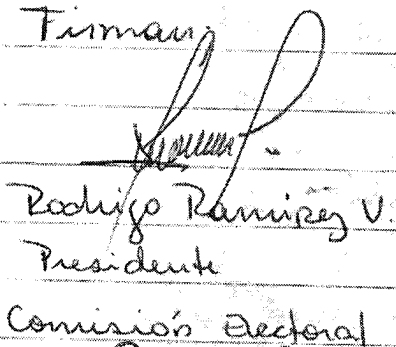 Firman:
Rodrigo Ramirez V.
Presidente
Comisión Electoral